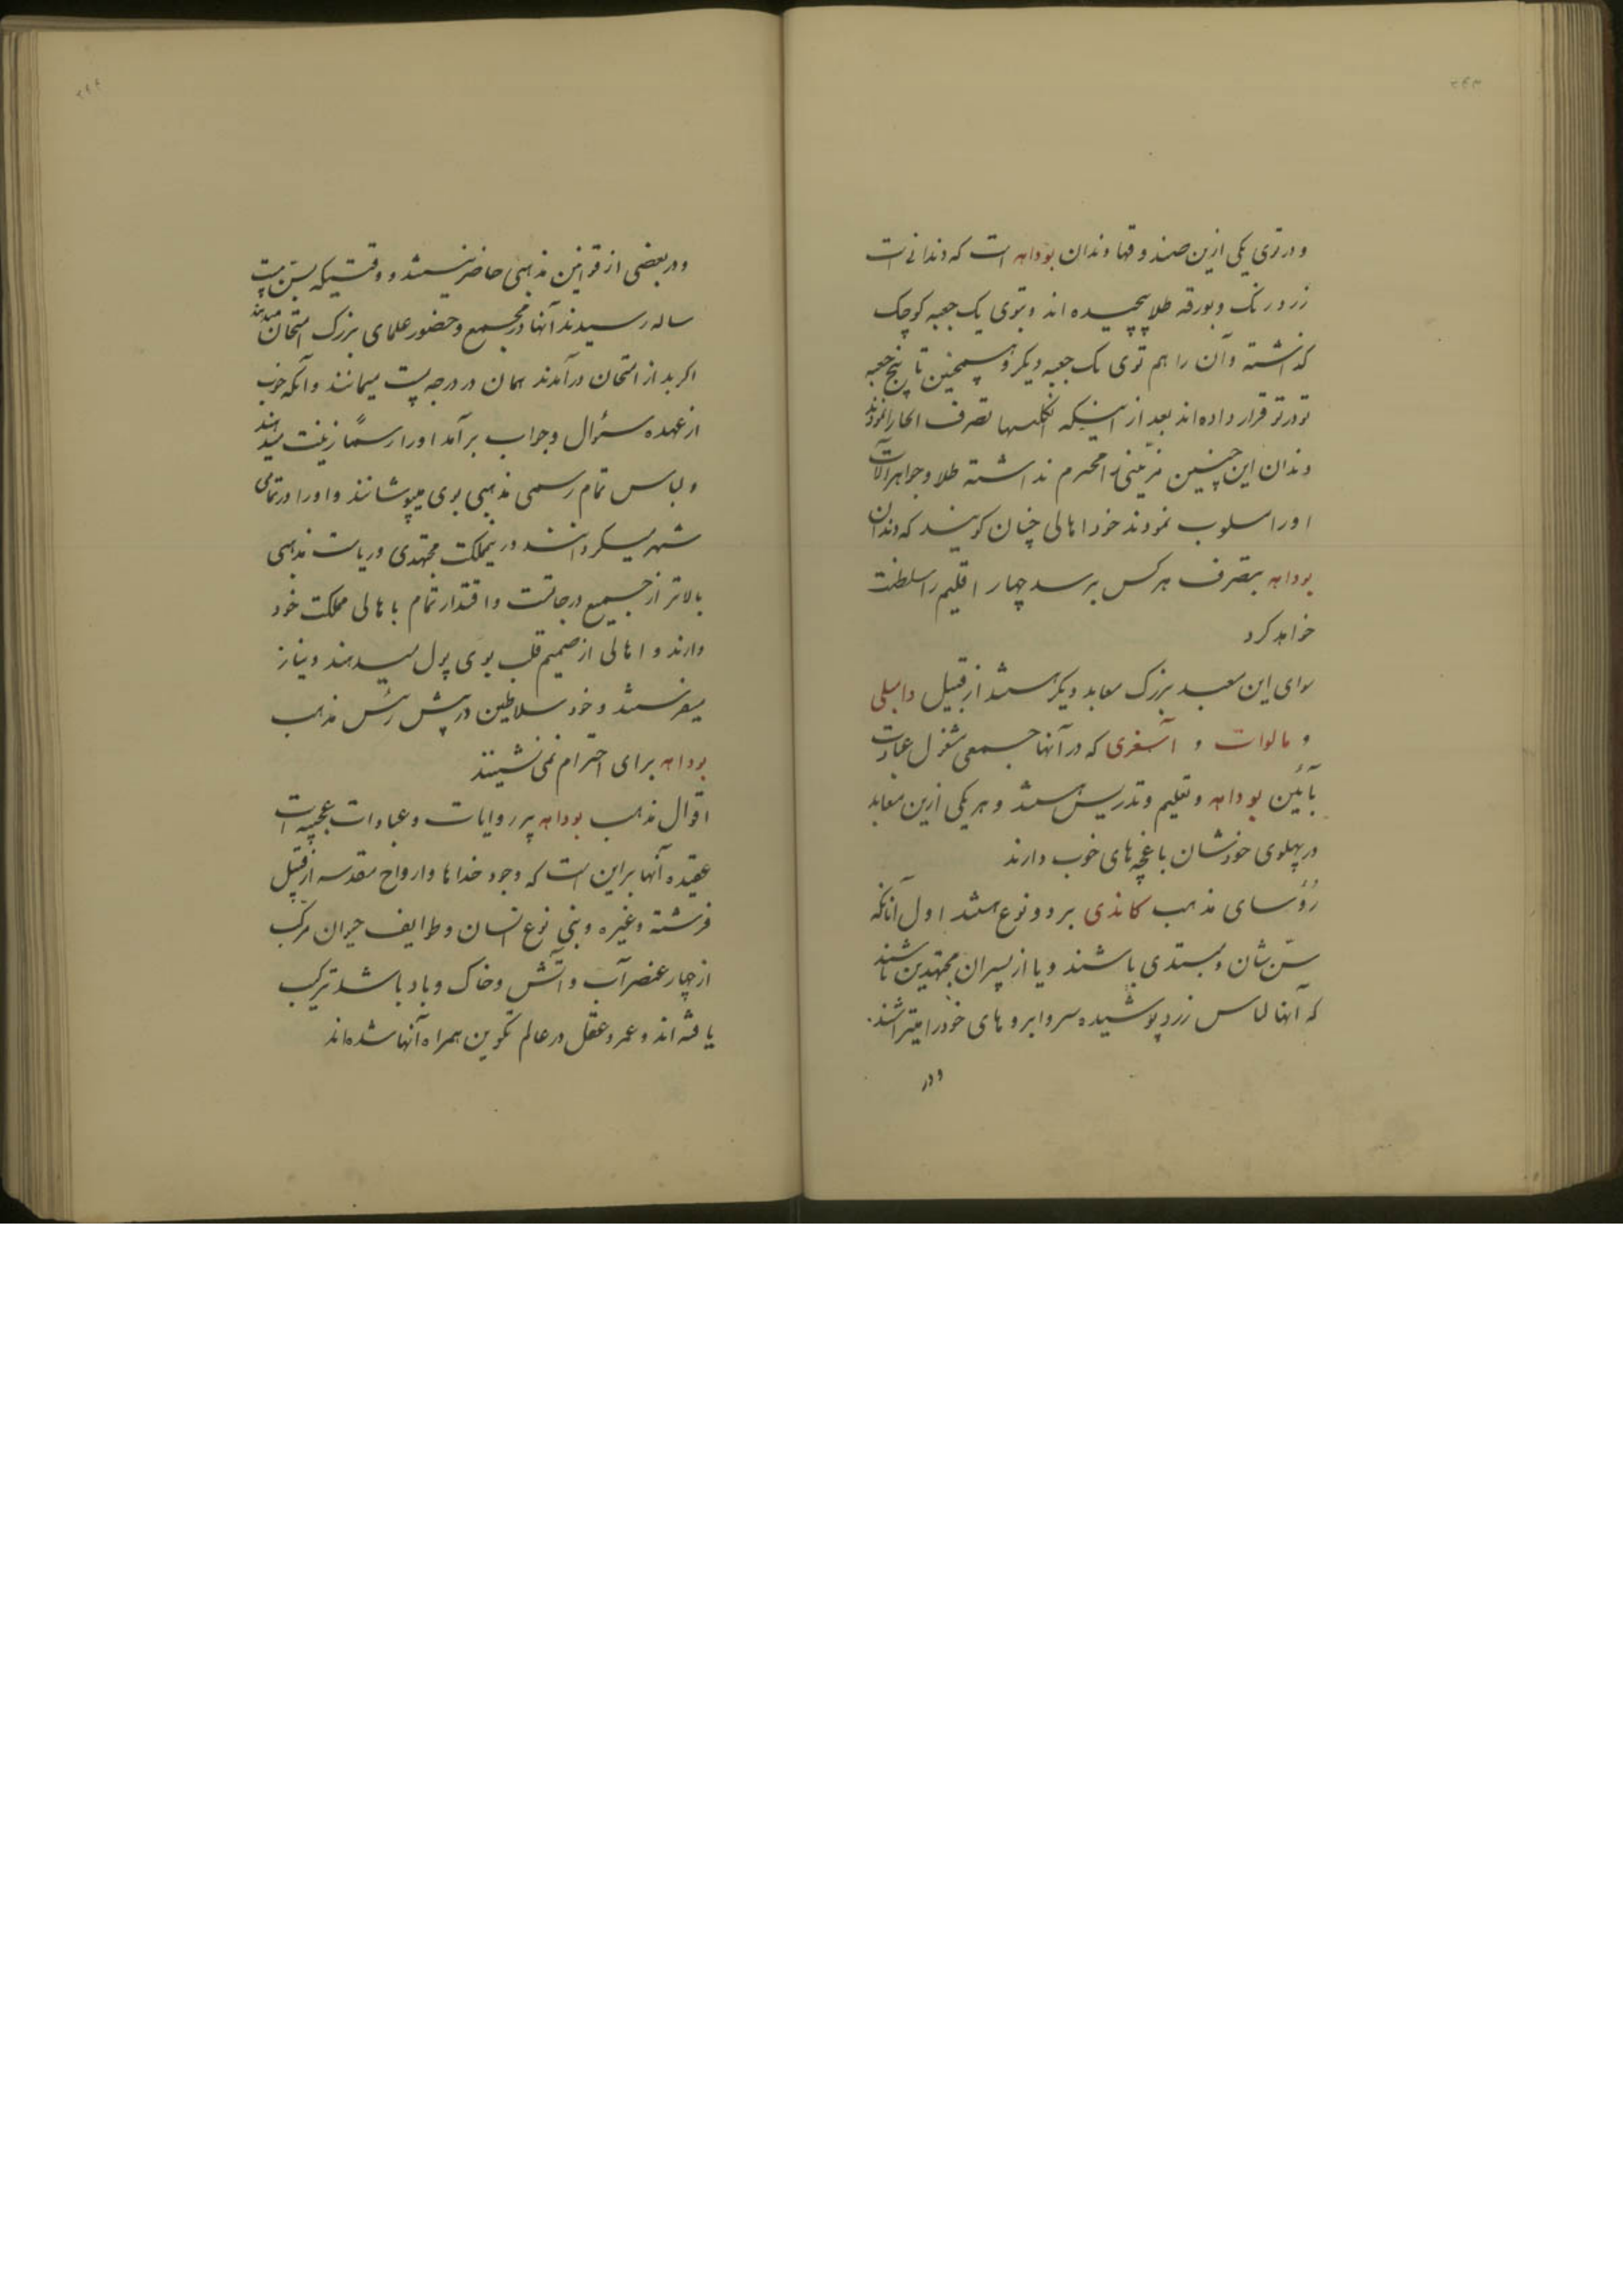 و در توی یکی ازین صندوقها دندان بوداهه است که دندانی است
زرد رنگ و بورقه طلا پیچیده اند و بتوی یک جعبه کوچک
گذاشته و آن را هم توی یک جعبه دیگر و همچنین تا پنج جعبه
تو در تو قرار داده اند بعد از اینکه انگلیسها تصرف انجا را نمودند
دندان این چنین مزینی را محترم نداشته طلا و جواهرآلات
او را مسلوب نمودند خود اهالی چنان گویند که دندان
بوداهه بتصرف هر کس برسد چهار اقلیم را سلطنت
خواهد کرد
سوای این معبد بزرگ معابد دیگر هستند از قبیل دامبلی
و مالوات و آسغری که در آنها جمعی مشغول عبادت
بآئین بوداهه و تعلیم و تدریس هستند و هر یکی ازین معابد
در پهلوی خودشان باغچه های خوب دارند
رؤسای مذهب کاندی بر دو نوع هستند اول آنانکه
سن شان مبتدی باشند و یا از پسران مجتهدین باشند
که آنها لباس زرد پوشیده سر و ابروهای خود را میتراشند
و در
و در بعضی از قوانین مذهبی حاضر نیستند و وقتیکه بسن بیست
ساله رسیدند آنها در مجمع و حضور علمای بزرگ امتحان میدهند
اگر بد از امتحان درآمدند همان در درجه پست میمانند و آنکه خوب
از عهده سئوال و جواب برآمد او را رسماً زینت میدهند
و لباس تمام رسمی مذهبی بوی میپوشانند و او را در تمامی
شهر میگردانند در ینمملکت مجتهدی و ریاست مذهبی
بالاتر از جمیع درجاتست و اقتدار تمام باهالی مملکت خود
دارند و اهالی از صمیم قلب بوی پول میدهند و نیاز
میفرستند و خود سلاطین در پیش رئیس مذهب
بوداهه برای احترام نمی نشینند
اقوال مذهب بوداهه پر روایات و عبادات عجیبه است
عقیده آنها براین است که وجود خداها و ارواح مقدسه از قبیل
فرشته و غیره و بنی نوع انسان و طوایف حیوان مرکب
از چهار عنصر آب و آتش و خاک و باد باشد ترکیب
یافته اند و عمر و عقل در عالم تکوین همراه آنها شده اند